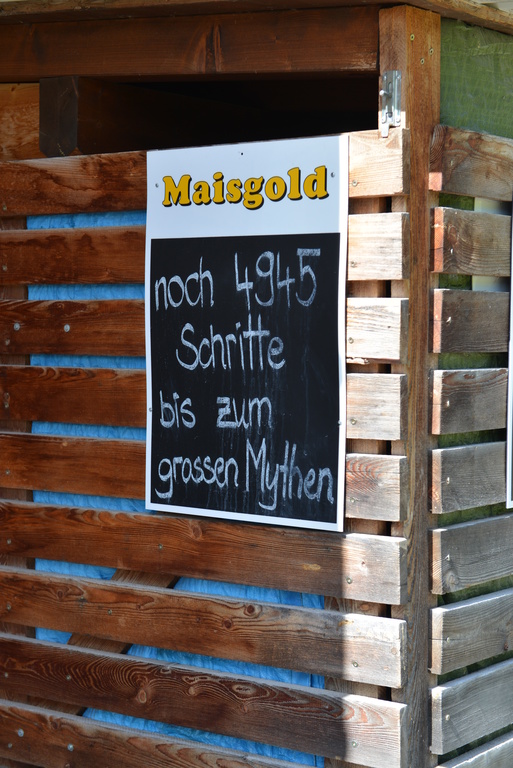 Maisgold
noch 4945
Schritte
bis zum
grossen Mythen